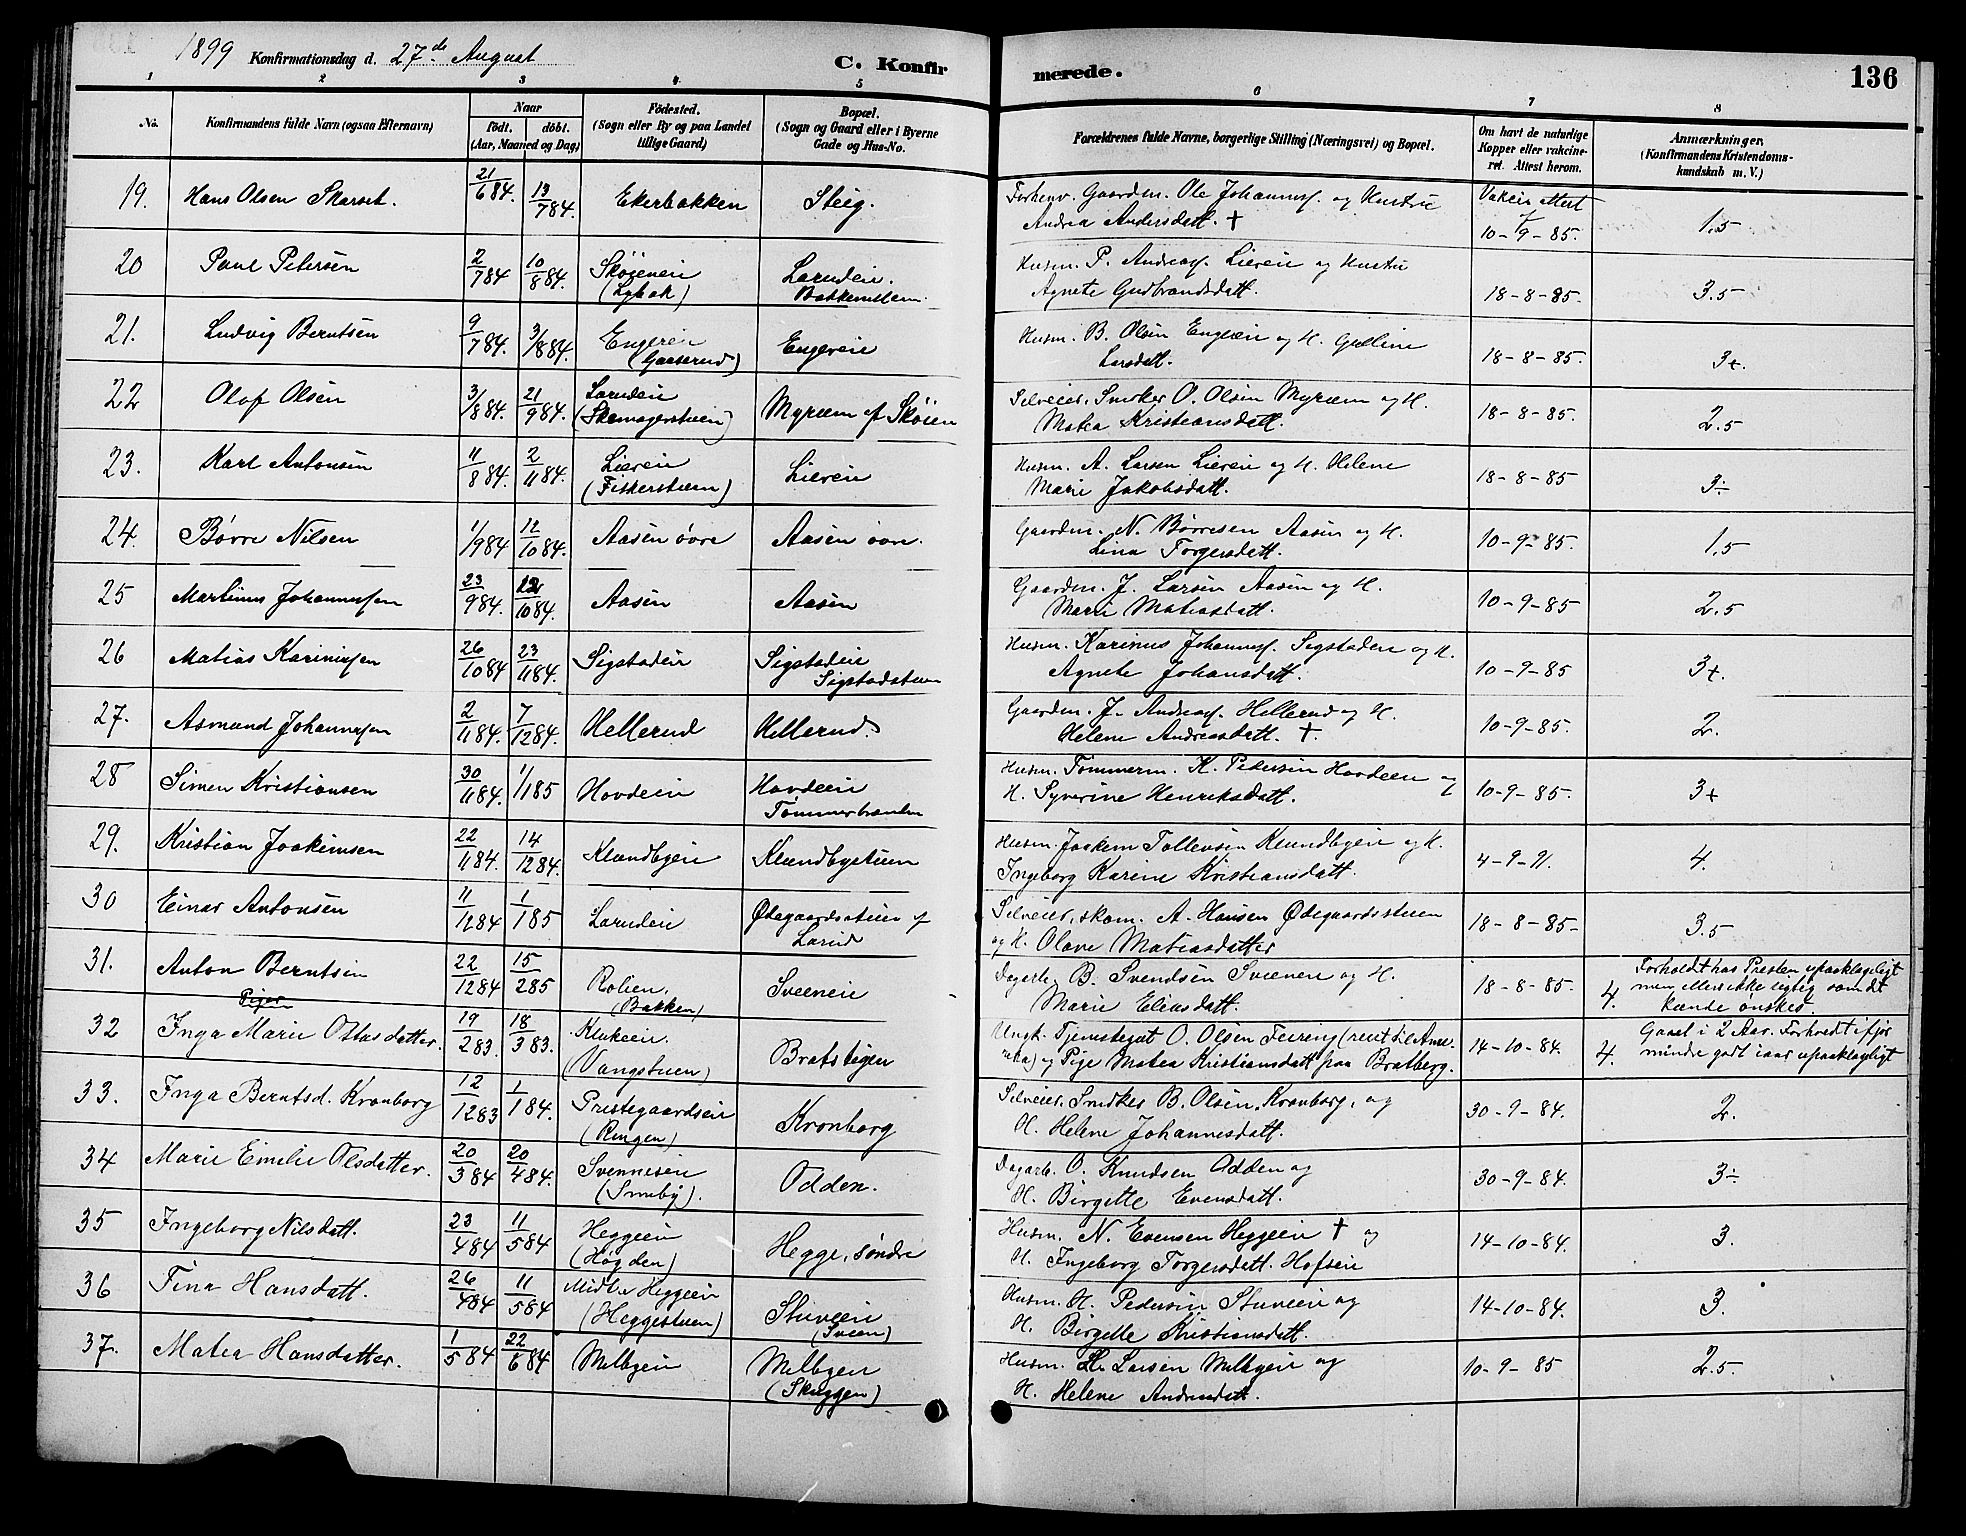 1899 Konfirmationsdag d. 27de August
C. Konfirmerede.
136
1 2 3 4 5 6 7 8
No.
Konfirmandens fulde Navn (ogsaa Efternavn)
Naar
födt. döbt.
(Aar, Maaned og Dag)
Födested.
(Sogn eller By og paa Landet
tillige Gaard)
Bopæl.
(Sogn og Gaard eller i Byerne
Gade og Hus-No.
Forældrenes fulde Navne, borgerlige Stilling (Næringsvei) og Bopæl.
Om havt de naturlige
Kopper eller vakcine-
ret. Attest herom.
Anmærkninger,
(Konfirmandens Kristendoms-
kundskab m. V.)
19. Hans Olsen Skarset. 21/6 84. 13/7 84. Ekerbakken Steig. Forhenv. Gaardm. Ole Johannesf. og Hustru Vakcin attest
Andrea Andersdatt. † 10-9-85. 1.5
20 Paul Petersen 2/7 84 10/8 84. Skøieneie Larudeie. Husm. P. Andreasf. Lieeie og Hustru
(Lybæk) Bakkemellem. Agnete Gudbrandsdatt. 18-8-85. 3.5
21. Ludvig Berntsen 9/7 84. 3/8 84. Engereie Engereie Husm. B. Olsen Engeeie og H. Gulline
(Gaaserud) Larsdatt. 18-8-85. 3+
22 Olaf Olsen 3/8 84. 21/9 84. Larudeie Myræm af Skøien Selveier, Snedker O. Olsen Myræm og H.
(Skomagerstuen) Matea Kristiansdatt. 18-8-85. 2.5
23. Karl Antonsen 11/8 84. 2/11 84. Liereie Liereie Husm. A. Larsen Liereie og H. Helene
(Fiskerstuen) Marie Jakobsdatt. 18-8-85 3÷
24. Børre Nilsen 1/9 84 12/10 84. Aasen øvre Aasen øvre. Gaardm. N. Børresen Aasen og H.
Lina Torgersdatt. 10-9-85. 1.5
25 Martinus Johannesfen 23/9 84. 12/10 84. Aasen Aasen Gaardm. J. Larsen Aasen og H.
Marie Matiasdatt. 10-9-85 2.5
26 Matias Karinusfen 26/10 84 23/11 84. Sigstadeie Sigstadeie Husm. Karinus Johannesf. Sigstadeie og H.
Sigstadstuen Agnete Johansdatt. 10-9-85 3+
27. Asmund Johannesfen 2/11 84. 7/12 84. Hellerud Hellerud. Gaardm. J. Andreasf. Hellerud og H.
Helene Andreasdatt. †. 10-9-85. 2.
28 Simen Kristiansen 30/11 84. 1/1 85 Hovdeie Hovdeie Husm. Tømmerm. K. Pedersen Hovdeie og
Tømmerbraaten H. Syverine Henriksdatt. 10-9-85. 3+
29. Kristian Joakimsen 22/11 84. 14/12 84. Klundbyeie Klundbystuen Husm. Joakim Tollevsen Klundbyeie og H.
Ingeborg Karine Kristiansdatt. 4-9-91. 4.
30 Einar Antonsen 11/12 84 1/1 85 Larudeie Ødegaardsstuen af Selveier, skom. A. Hansen Ødegaardsstuen
Larud og H. Olave Matiasdatter 18-8-85- 3.5
31. Anton Berntsen 22/12 84 15/2 85 Roliene. Sveeneie Dagarb. B. Svendsen Sveeneie og H.
(Bakken) Marie Eliasdatt. 18-8-85. 4. Forholdt hos Presten upaaklageligt
men ellers ikke rigtig som det
kunde ønskes.
Piger
32 Inga Marie Ottosdatter. 19/2 83. 18/3 83. Klukeeie. Bratstigen Ungk. Tjenestegut O. Olsen Feiring (reist til Ame-
(Vangstuen) rika) og Pige Matea Kristiansdatt paa Bratberg. 14-10-84. 4. Gaaet i 2 Aar. Forholdt ifjor
mindre godt iaar upaaklageligt
33. Inga Berntsd. Kronborg 12/12 83 1/1 84. Prestegaardseie Kronborg Selveier, Snedker B. Olsen Kronborg, og
(Ringen) H. Helene Johannesdatt. 30-9-84. 2.
34 Marie Emilie Olsdatter. 20/3 84 20/4 84. Svenneseie Odden. Dagarb. O. Knudsen Odden og
(Smeby). H. Birgitte Evensdatt. 30-9-84. 3÷
35 Ingeborg Nilsdatt. 23/4 84 11/5 84 Heggeeie Hegge, søndre Husm. N. Evensen Heggeeie † og
(Høgden) H. Ingeborg Torgersdatt. Hofseie 14-10-84. 3.
36 Tina Hansdatt. 26/4 84 11/5 84 Midtre Heggeeie Stuveeie Husm. H. Pedersen Stuveeie og
(Heggestuen) (Sveen) H. Birgitte Kristiansdatt. 14-10-84. 3.
37. Matea Hansdatter. 1/5 84 22/6 84 Melbyeie Melbyeie Husm. H. Larsen Melbyeie og
(Skuggen) H. Helene Andreasdatt. 10-9-85 2.5